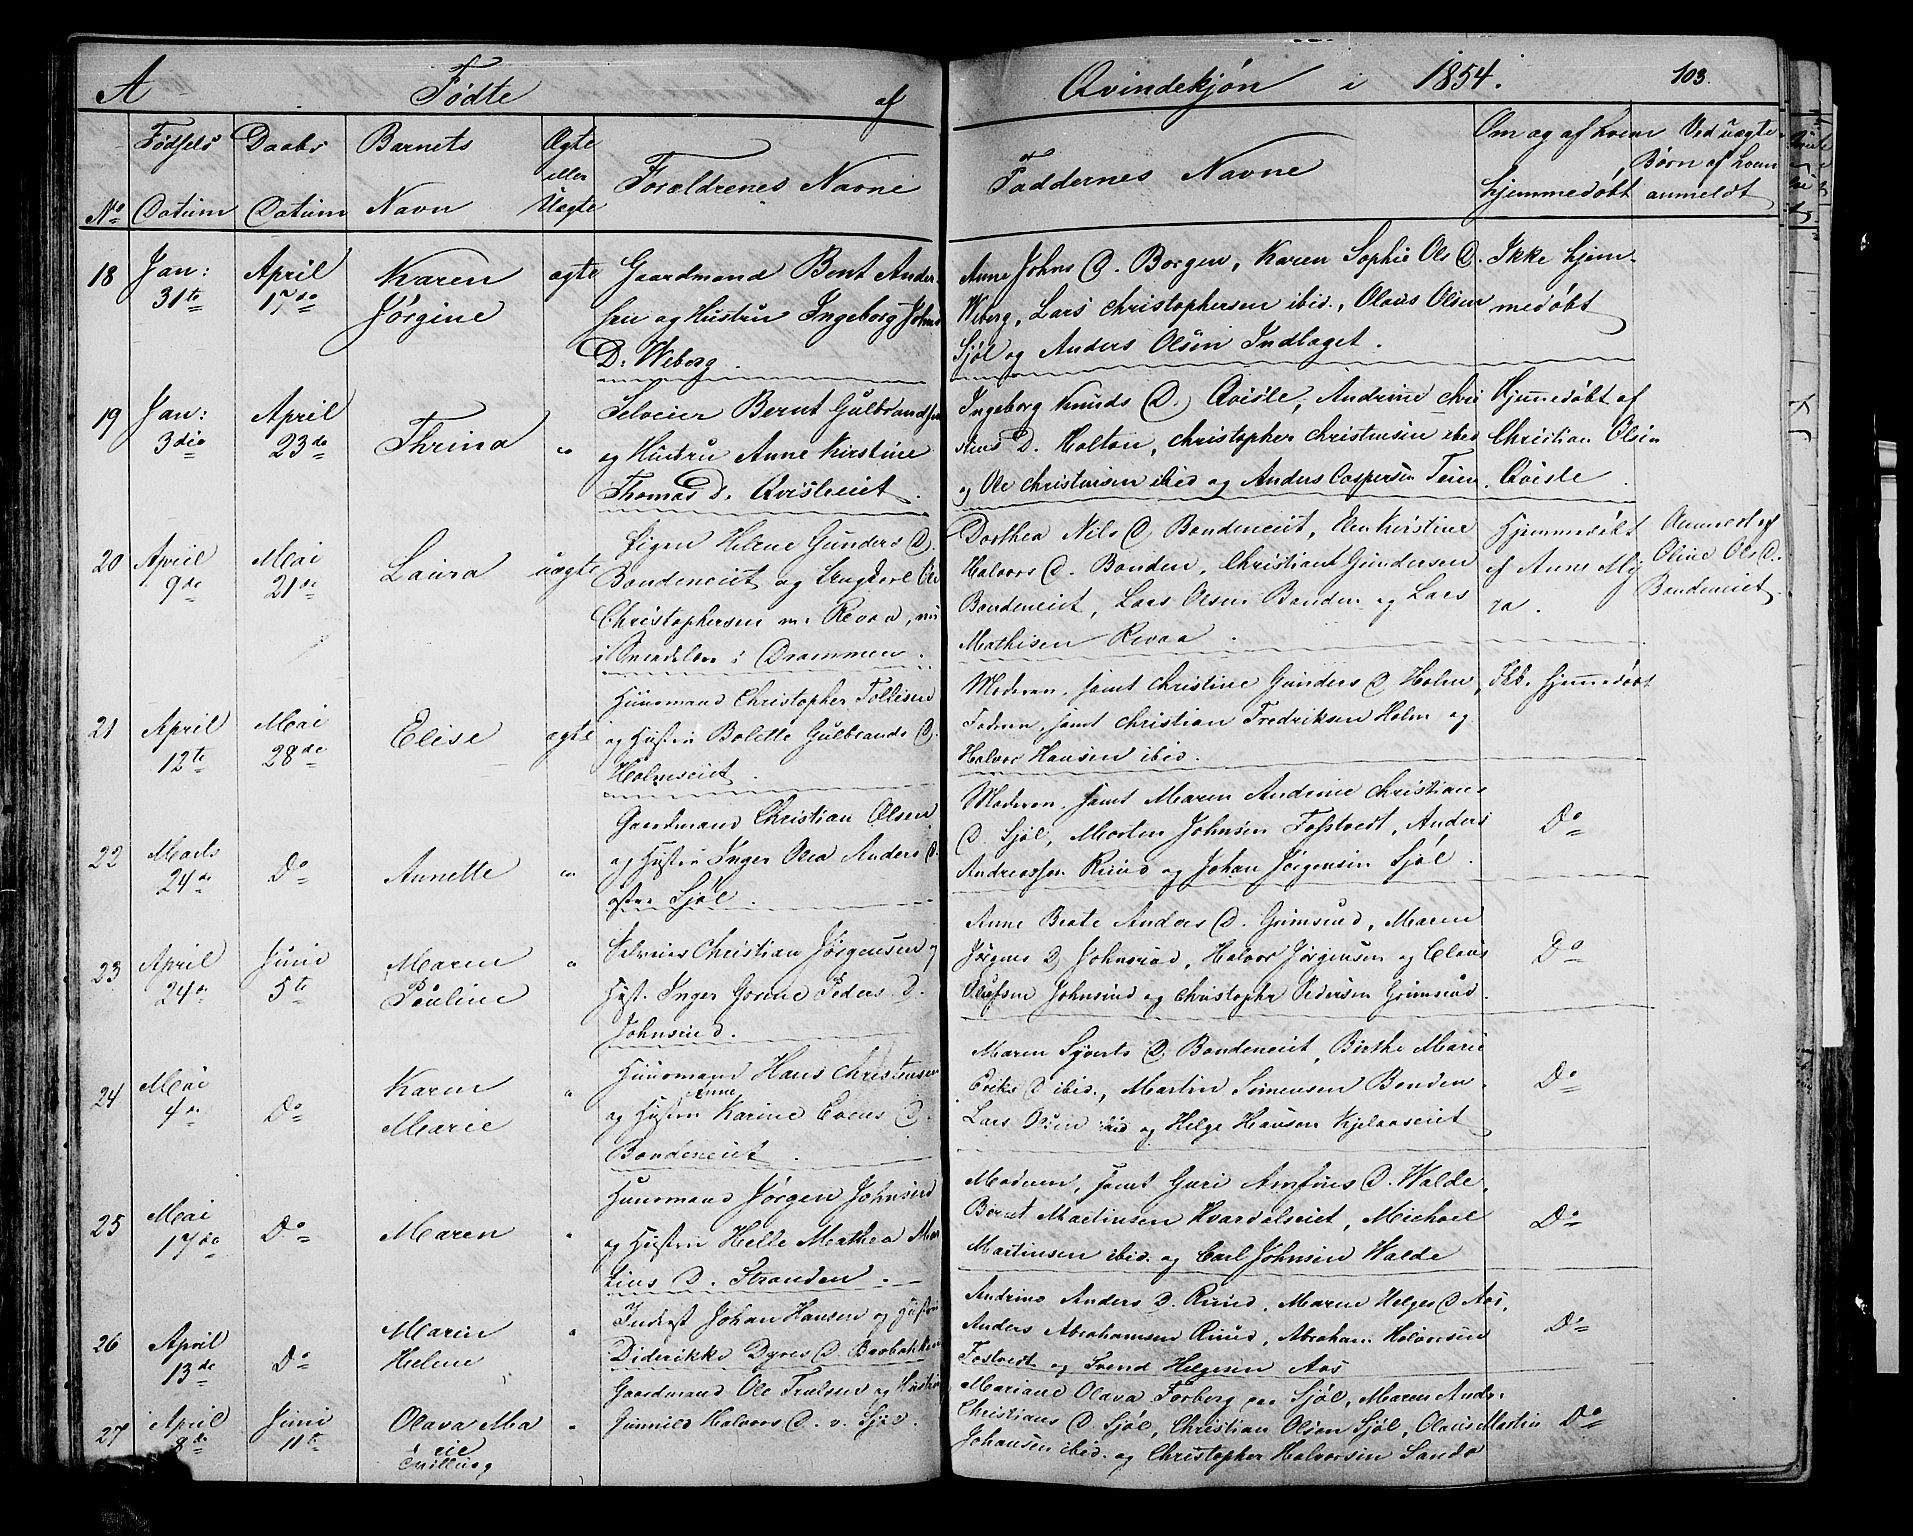 A Fødte af Qvindekjøn i 1854. 103.
No Fødsels Datum Daabs Datum Barnets Navn Ægte eller Uægte Forældrenes Navne Faddernes Navne Om og af hvem hjemmedøbt Ved uægte Børn af hvem anmeldt
18 Jan: April Karen ægte Gaardmand Bent Ander
31te 17de Jørgine sen og Hustru Ingeborg Johns
D. Weberg.
Anne Johns D. Borgen, Karen Sophie Ols D.
Weberg, Lars Christophersen ibid., Olaus Olsen
Sjøl og Anders Olsen Indlaget.
Ikke hjem-
medøbt
19 Jan: April Selveier Bernt Gulbrandsen
3die 23de Thrina " og Hustru Anne Kirstine
Thomas D. Qvisleeiet.
Ingeborg Knuds D. Qvisle, Andrine Chri
stens D. Holton, Christopher Christensen ibid
og Ole Christensen ibid og Anders Caspersen Teien.
Hjemmedøbt af
Christian Olsen
Qvisle.
20 April Mai Laura uægte Pigen Helene Gunders D.
9de 21de Bondeneiet og Ungkarl Ole
Christophersen Revaa, nu
i Drammen.
Dorthea Nils D. Bondeneiet, Elen Kirstine
Halvors D. Bonden, Christian Gundersen
Bondeneiet, Lars Olsen Bonden og Lars
Mathisen Revaa.
Hjemmedøbt
af Anne
Anmeldt af
Oline Ols D.
Bondeneiet.
21 April Mai Elise ægte Huusmand Christopher Tollefsen
12te 28de og Hustru Bolette Gulbrands D.
Holmseiet.
Moderen, samt Christine Gunders D Holm,
Faderen, samt Christian Fredriksen Holm og
Halvor Hansen ibid.
Ik. hjemmedøbt
22 Marts Do Annette " Gaardmand Christian Olsen
24de og Hustru Inger Olea Anders D.
østre Sjøl.
Moderen, samt Maren Andrine Christians
D. Sjøl, Morten Johnsen Fosstvedt, Anders
Andreassen Ruud og Johan Jørgensen Sjøl.
Do
23 April Juni Maren " Selveier Christian Jørgensen og
24de 5te Pauline Hust. Inger Gorine Peders D.
Johnsrud.
Anne Beate Anders D. Grimsrud, Maren
Jørgens D Johnsrud, Halvor Jørgensen og Claus
Olafsen Johnsrud og Christopher Pedersen Grimsrud.
Do
24 Mai Do Karen " Huusmand Hans Christensen
4de Marie og Hustru Anne Karine Evens D.
Bondeneiet.
Maren Syverts D. Bondeneiet, Birthe Marie
Eriks D ibid., Martin Simensen Bonden
Lars Olsen ibid og Helge Hansen Kjelaaseiet
Do
25 Mai Do Maren " Huusmand Jørgen Johnsen
17de og Hustru Helle Mathea Mar
tins D. Stranden.
Moderen, samt Guri Arnfins D. Walde,
Bernt Martinsen Hvardalseiet, Michael
Martinsen ibid. og Carl Johnsen Walde
Do
26 April Do Maren " Inderst Johan Hansen og Hustru
13de Helene Diderikke Dyres D Baabakken
Andrine Anders D. Ruud, Maren Helges D Aas,
Anders Abrahamsen Ruud, Abraham Halvorsen
Fostvedt og Svend Helgesen Aas
Do
27 April Juni Olava Ma " Gaardmand Ole Trulssen og Hustru
8de 11te rie Gunnild Halvors D. v. Sjøl.
Tvilling
Mariane Olava Forberg paa Sjøl, Maren Andr.
Christians D Sjøl, Christian Olsen Sjøl, Olaus Martin
Johansen ibid. og Christopher Halvorsen Sando
Do